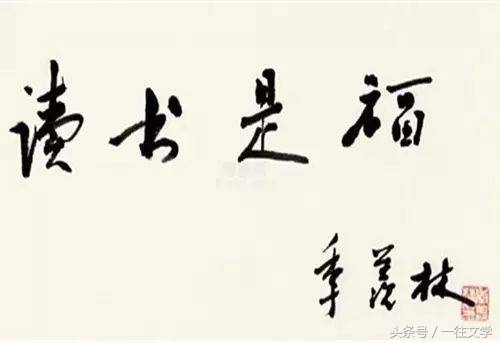 读书是福
季羡林
头条号／一往文学